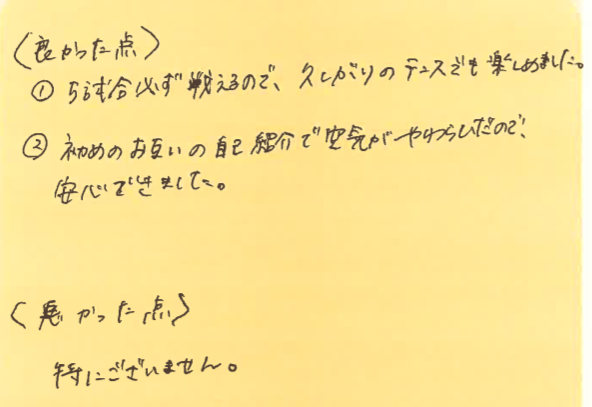 〈良かった点〉
① 5試合必ず戦えるので、久しがりのテニスでも楽しめました。
② 初めのお互いの自己紹介で空気がやわらいだので、
安心できました。
〈悪かった点〉
特にございません。